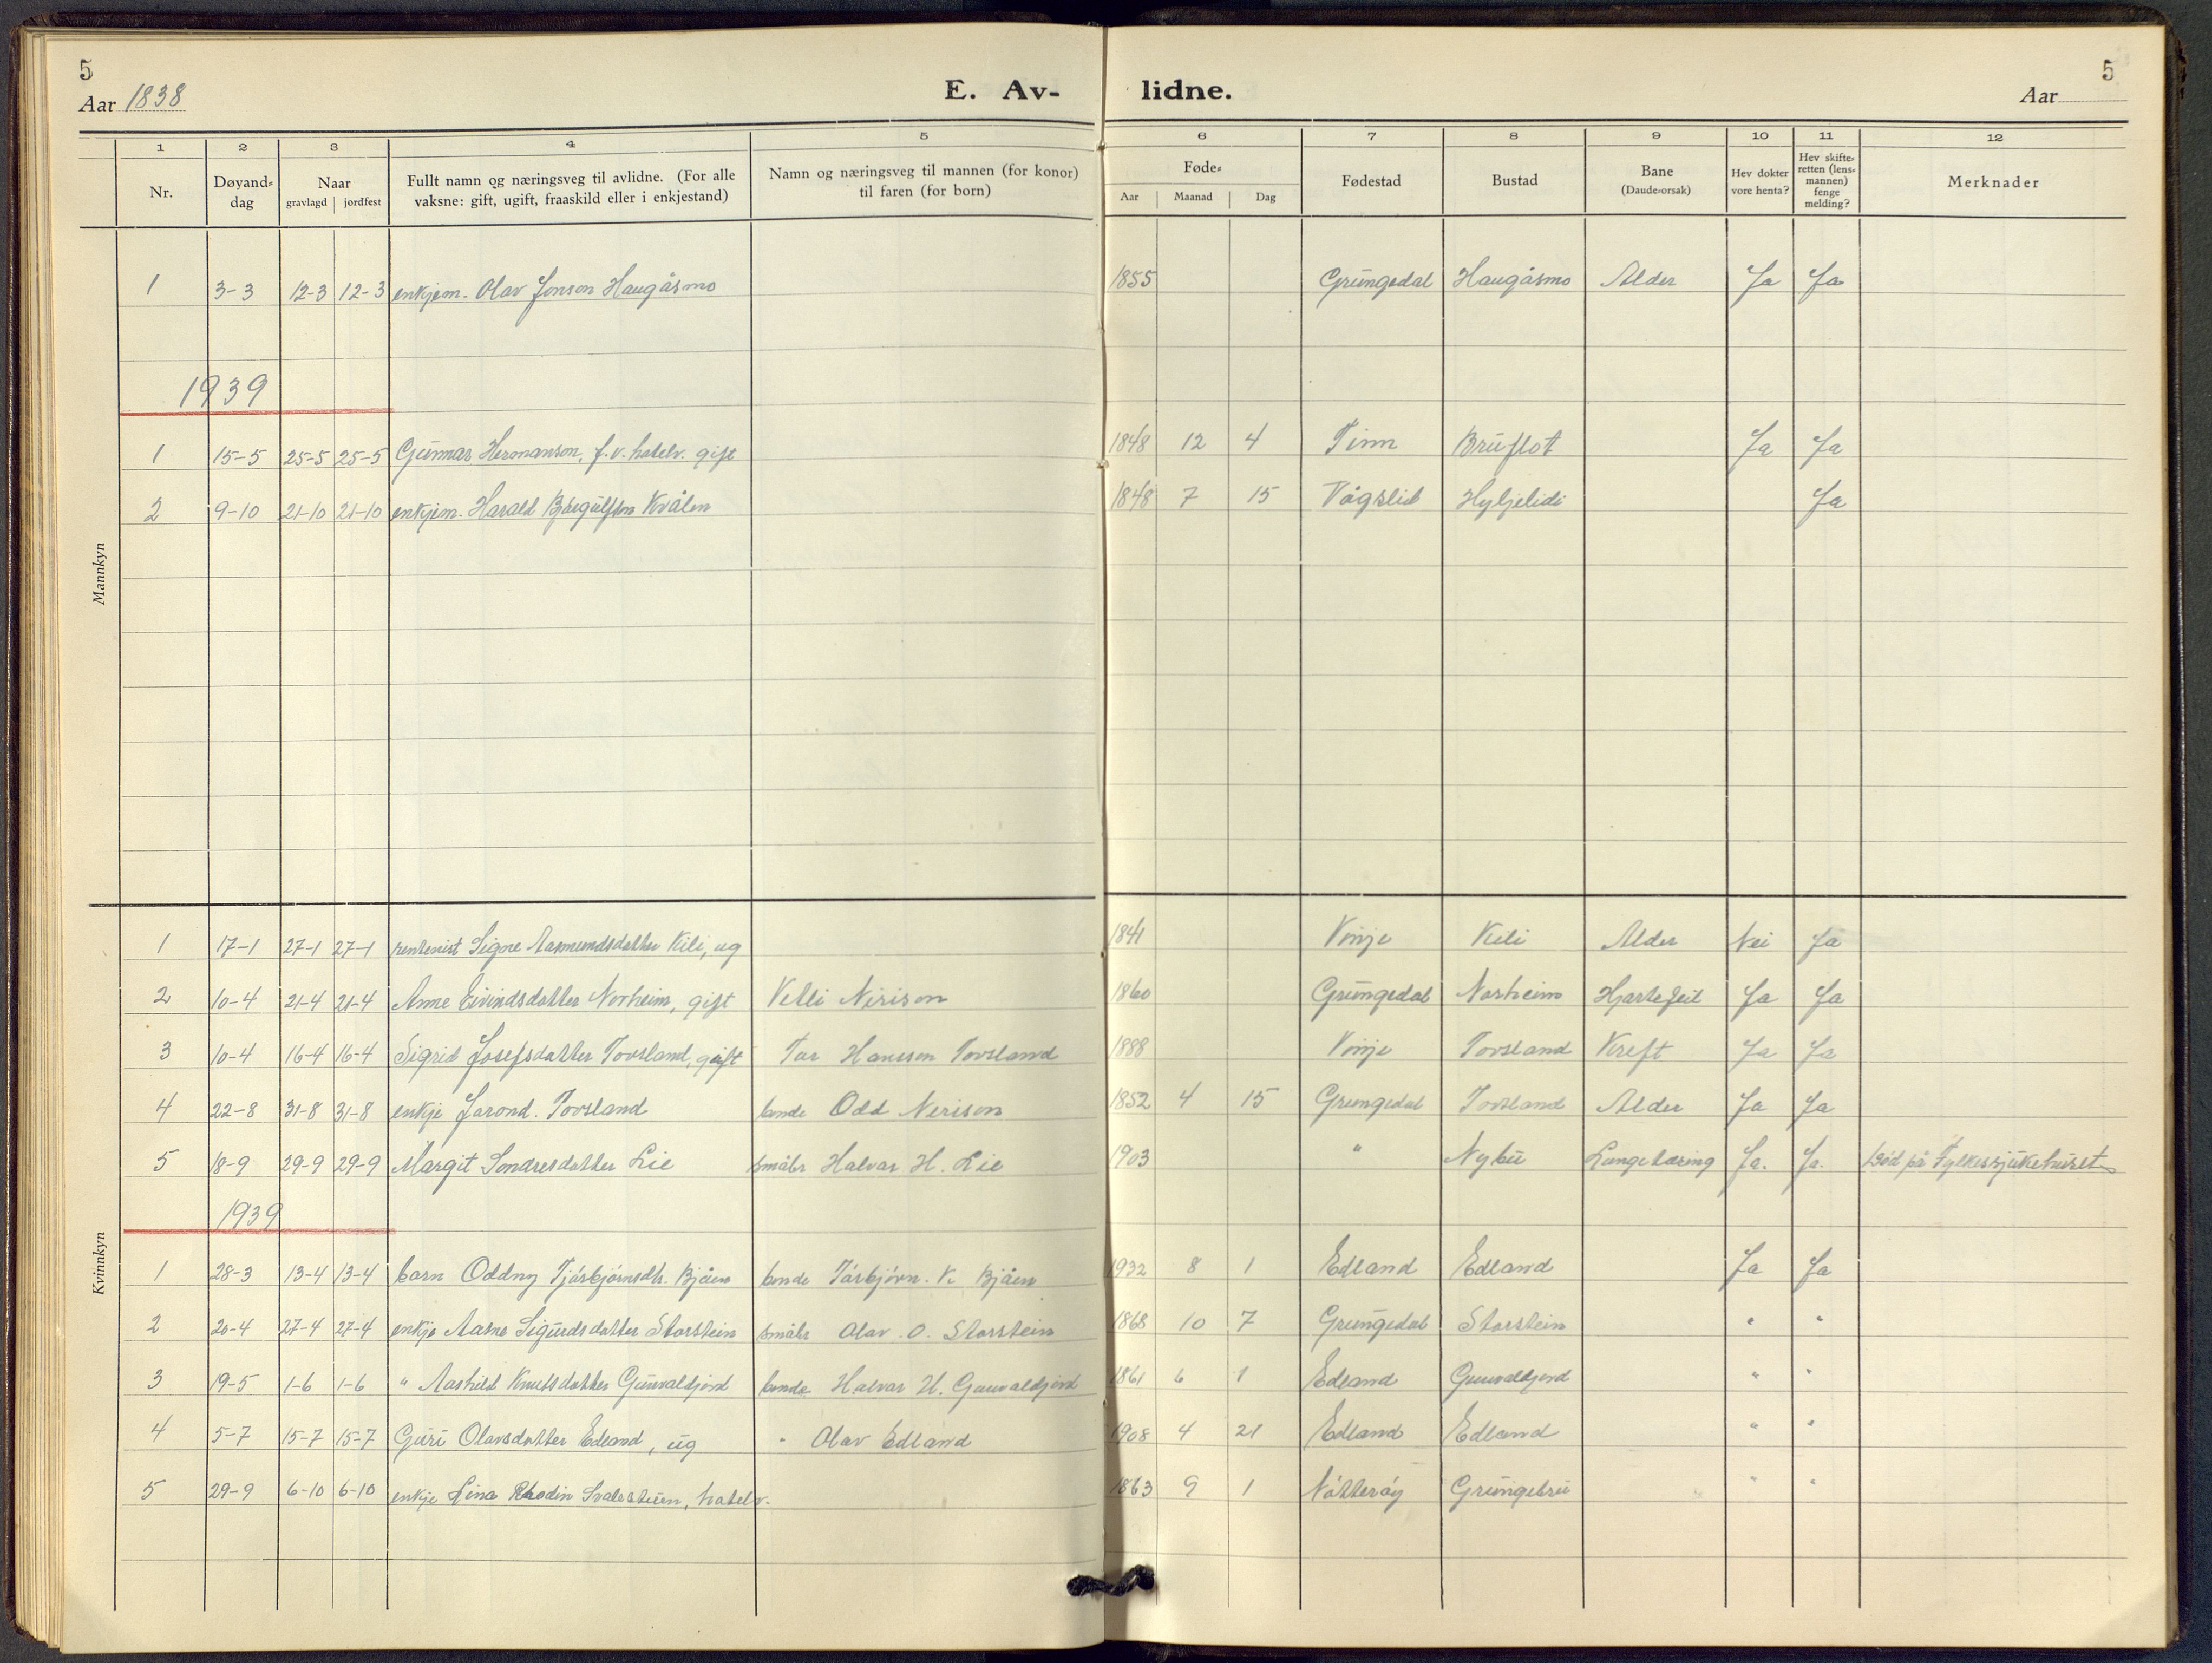 5
Aar 1838
E. Av-
lidne.
5
Aar
1 2 3 4 5 6 7 8 9 10 11 12
Nr.
Døyand-dag
Naar
gravlagd jordfest
Fullt namn og næringsveg til avlidne. (For alle
vaksne: gift, ugift, fraaskild eller i enkjestand)
Namn og næringsveg til mannen (for konor)
til faren (for born)
Føde-
Aar Maanad Dag
Fødestad
Bustad
Bane
(Daude-orsak)
Hev dokter
vore henta?
Hev skifte-
retten (lens-
mannen)
fenge
melding?
Merknader
Mannkyn
1 3-3 12-3 12-3 enkjem. Olav Jonson Haugåsmo 1855 Grungedal Haugåsmo Alder Ja Ja
1939
1 15-5 25-5 25-5 Gunnar Hermanson, f.v. hotelv. gift 1848 12 4 Tinn Bruflot Ja Ja
2 9-10 21-10 21-10 enkjem. Harald Kvålen 1848 7 15 Vågslid Hyljelidi Ja
Kvinnkyn
1 17-1 27-1 27-1 rentenist Signe Aasmundsdatter Kili, ug 1841 Vinje Kili Alder Nei Ja
2 10-4 21-4 21-4 Anne Eivindsdatter Norheim, gift Vetli Nirison 1860 Grungedal Norheim Hjartefeil Ja Ja
3 10-4 16-4 16-4 Sigrid Josefsdatter Tovsland, gift Tor Hansson Tovsland 1888 Vinje Tovsland Kreft Ja Ja
4 22-8 31-8 31-8 enkje Jorond. Tovsland bonde Odd Nerison 1852 4 15 Grungedal Tovsland Alder Ja Ja
5 18-9 29-9 29-9 Margit Sondresdatter Lie småbr Halvar H. Lie 1903 " Nybu Lungetæring Ja. Ja. Død på Fylkessjukehuset
1939
1 28-3 13-4 13-4 born Oddny Tjórbjórnsdtr. Bjåen bonde Tórbjórn. K. Bjåen 1932 8 1 Edland Edland Ja Ja
2 20-4 27-4 27-4 enkje Aasne Sigurdsdatter Storstein småbr Olav. O. Storstein 1868 10 7 Grungedal Storstein " "
3 19-5 1-6 1-6 " Aashild Knutsdatter Gunvaldjord bonde Halvar H. Gunvaldjord 1861 6 1 Edland Gunvaldjord " "
4 5-7 15-7 15-7 Guri Olavsdatter Edland, ug " Olav Edland 1908 4 21 Edland Edland " "
5 29-9 6-10 6-10 enkje Lina Rhodin Svalestuen, hotelv. 1863 9 1 Nótteróy Grungebru " "